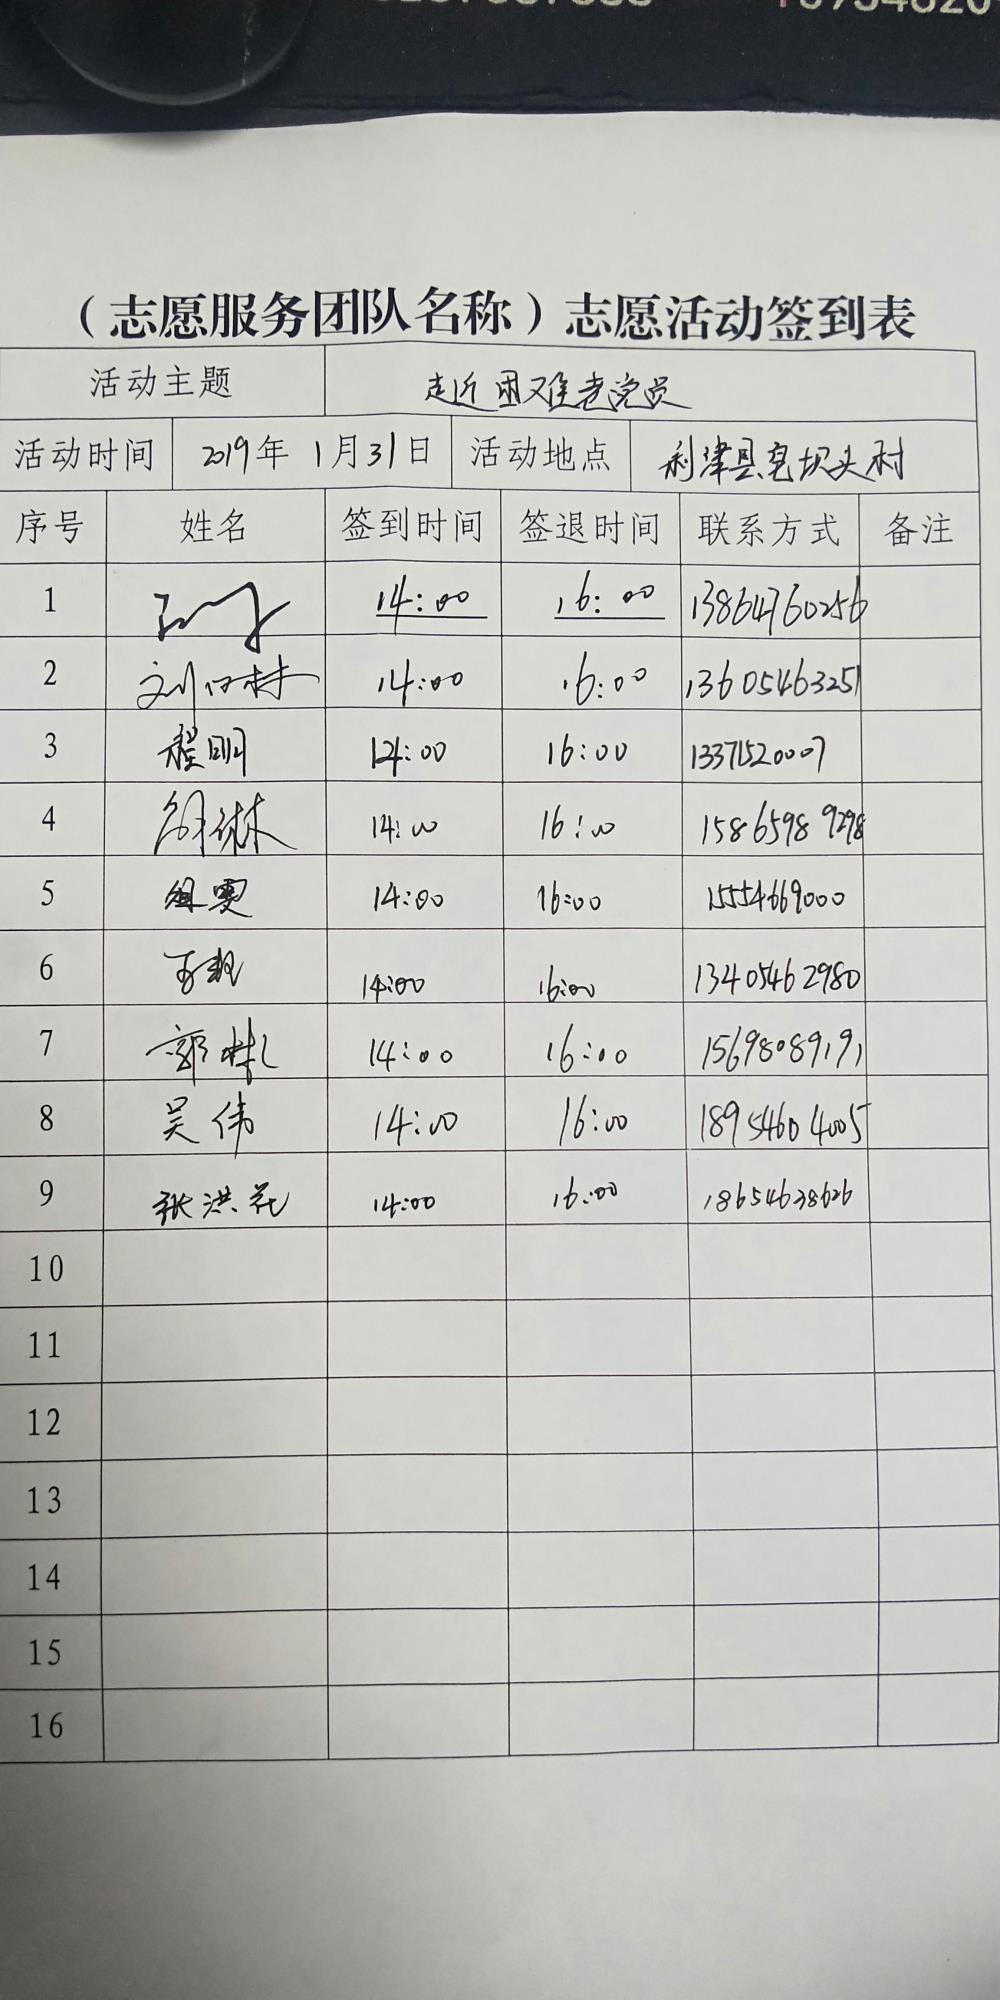 （志愿服务团队名称）志愿活动签到表
活动主题 走近困难老党员
活动时间 2019年 1月31日 活动地点 利津县皂坝头村
序号 姓名 签到时间 签退时间 联系方式 备注
1 14:00 16:00 13864760256
2 刘 14:00 16:00 13605463251
3 程明 14:00 16:00 13371520007
4 14:00 16:00 15865989298
5 雯 14:00 16:00 15554669000
6 14:00 16:00 13405462980
7 郭彬 14:00 16:00 15698089191
8 吴伟 14:00 16:00 18954604005
9 张洪花 14:00 16:00 18654638626
10
11
12
13
14
15
16